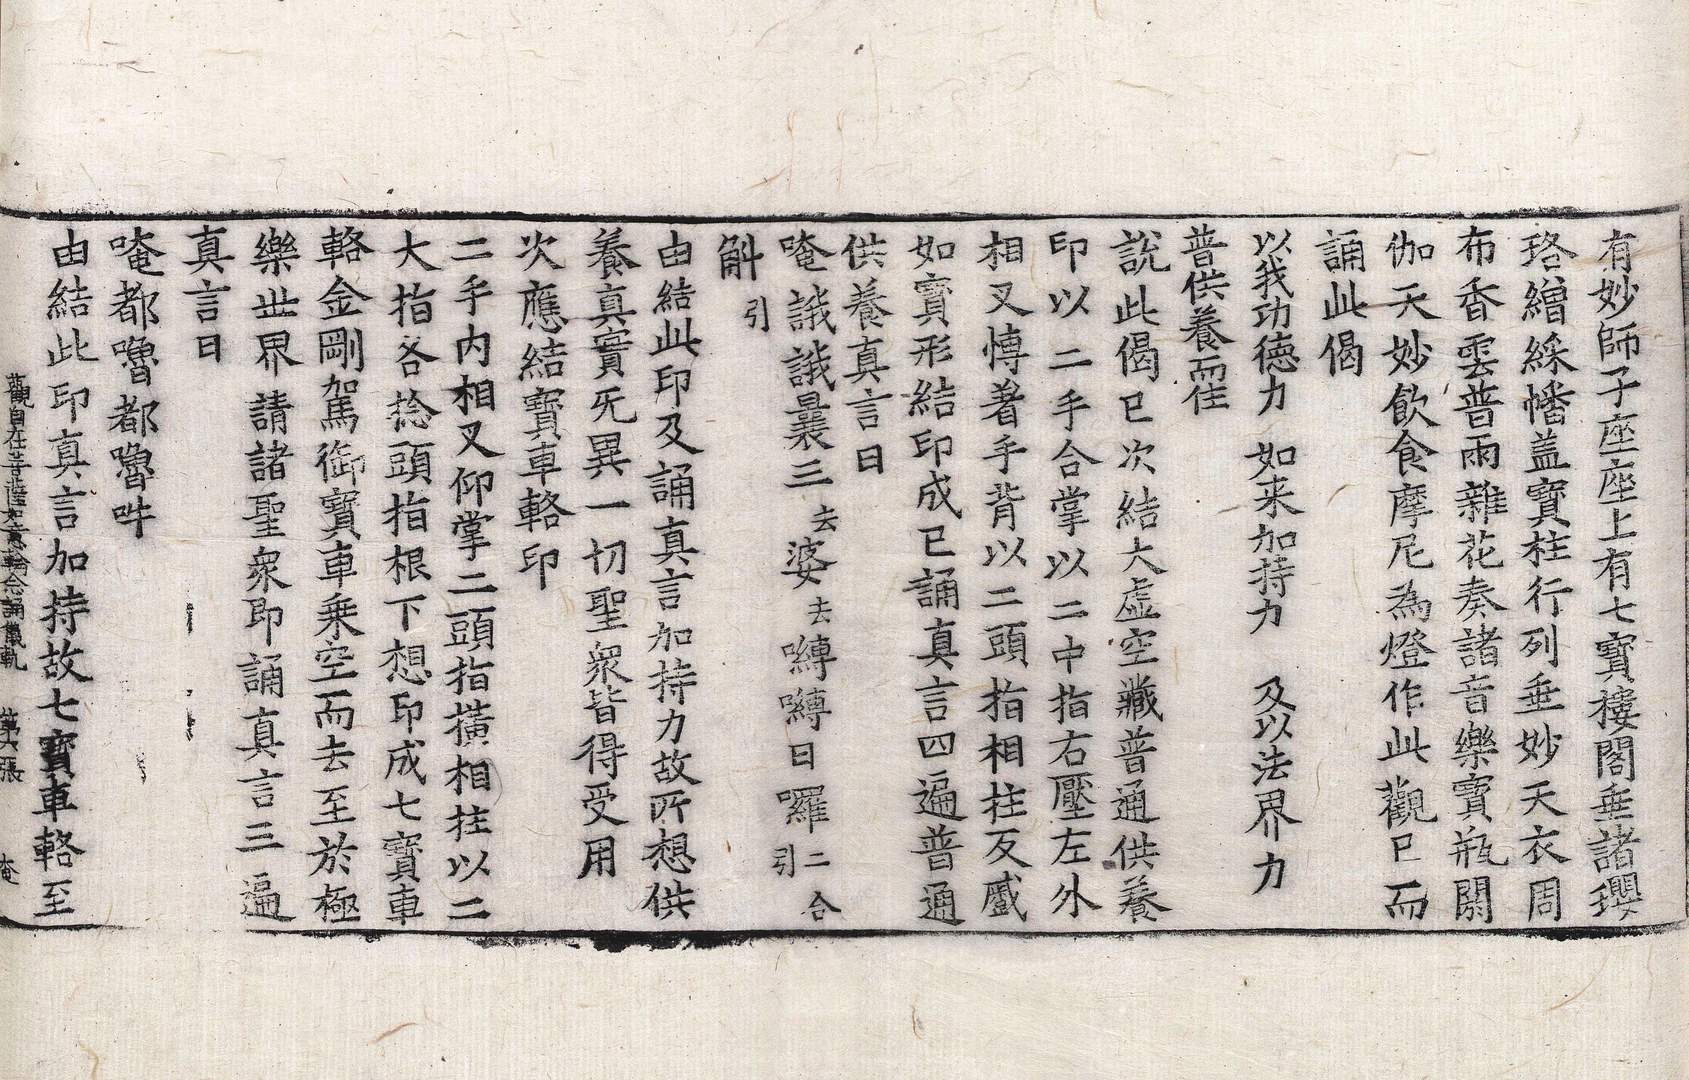 有妙師子座座上有七寶樓閣垂諸瓔
珞繒綵幡盖寶柱行列垂妙天衣周
布香雲普雨雜花奏諸音樂寶瓶閼
伽天妙飲食摩尼為燈作此觀已而
誦此偈
以我功德力　如来加持力　及以法界力
普供養而住
說此偈已次結大虛空藏普通供養
印以二手合掌以二中指右壓左外
相叉愽著手背以二頭指相拄反蹙
如寶形結印成已誦真言四遍普通
供養真言曰
唵誐誐曩三去婆去嚩嚩日囉二合引
斛引
由結此印及誦真言加持力故所想供
養真實无異一切聖衆皆得受用
次應結寶車輅印
二手内相叉仰掌二頭指撗相拄以二
大指各捻頭指根下想印成七寶車
輅金剛駕御寶車乗空而去至於極
樂世界請諸聖衆即誦真言三遍
真言曰
唵都嚕都嚕吽
由結此印真言加持故七寶車輅至
觀自在菩薩如意輪念誦儀軌　第六張　唵